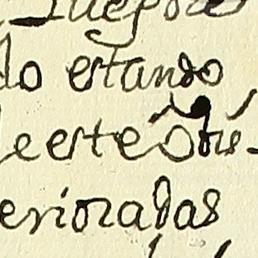 lo estando
e este Obis-
eriozadas